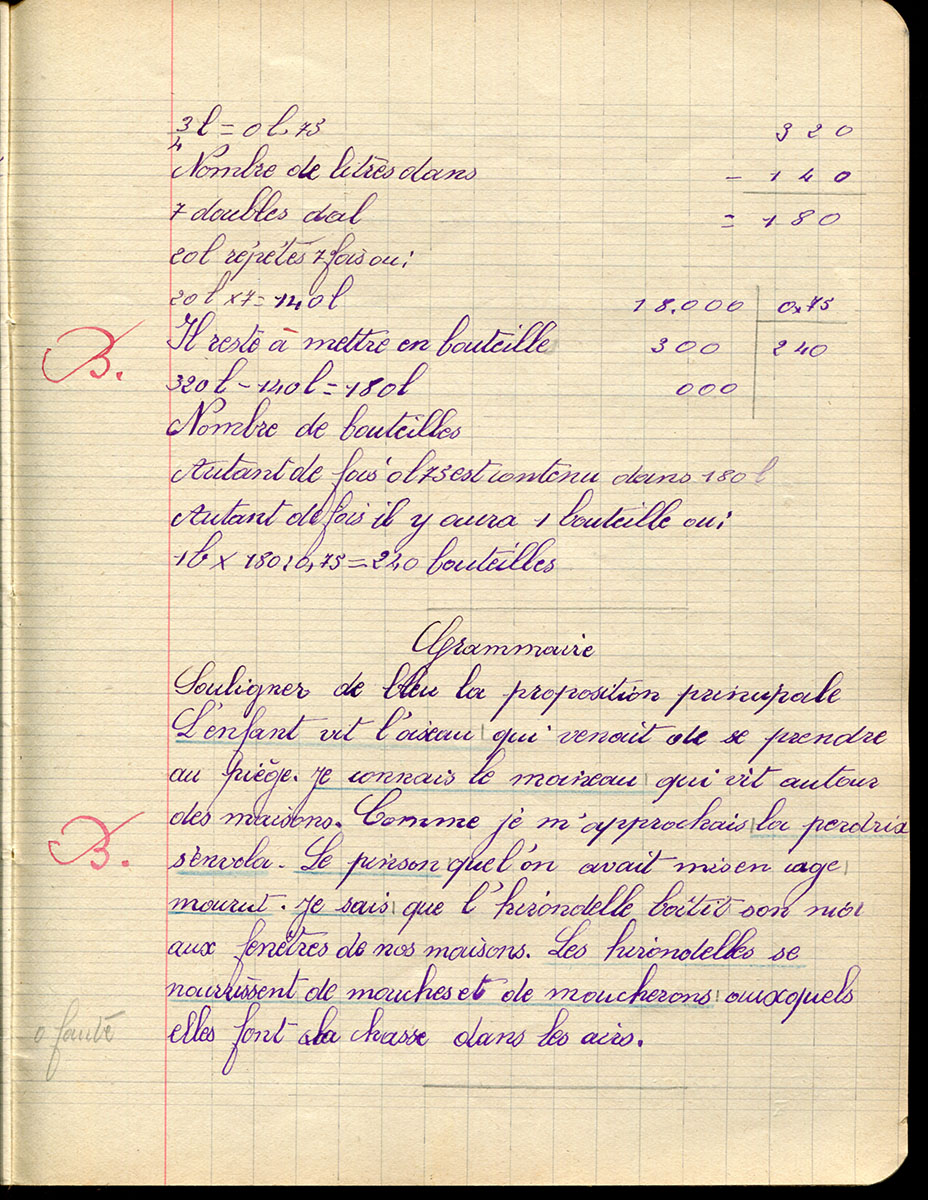 3/4 l = 0l,75
3 2 0
Nombre de litres dans
- 1 4 0
7 doubles dal
= 1 8 0
20l répétés 7 fois ou :
20l x 7 = 140l
18.000 | 0,75
Il reste à mettre en bouteille
300 | 240
B.
320l - 140l = 180l
000
Nombre de bouteilles
Autant de fois 0l75 est contenu dans 180l
Autant de fois il y aura 1 bouteille ou :
1b x 180 : 0,75 = 240 bouteilles
Grammaire
Souligner de bleu la proposition principale
L'enfant vit l'oiseau | qui venait de se prendre
au piège. Je connais le moineau | qui vit autour
des maisons. Comme je m'approchais | la perdrix
B.
s'envola. Le pinson que l'on avait mis en cage |
mourut. Je sais | que l'hirondelle bâtit son nid
aux fenêtres de nos maisons. Les hirondelles se
nourrissent de mouches et de moucherons | auxquels
0 faute
elles font la chasse dans les airs.